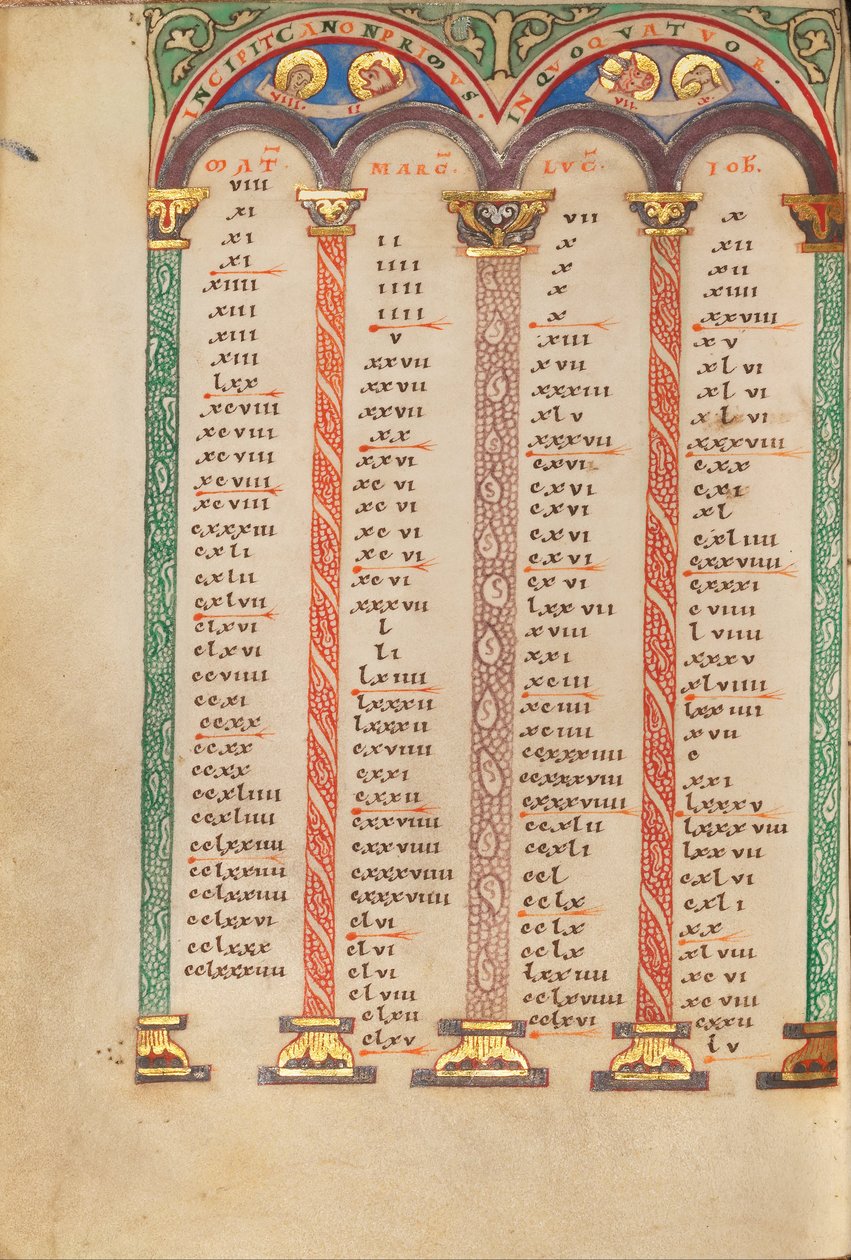 INCIPIT CANON PRIMVS. IN QVO QVATVOR.
VIII. II
VII. X.
MAT.
VIII
XI
XI
XI
XIIII
XIII
XIII
XIII
lXX
XCVIII
XCVIII
XCVIII
XCVIII
XCVIII
CXXXIII
CXlI
CXlII
CXlVII
ClXVI
ClXVI
CCVIIII
CCXI
CCXX
CCXX
CCXX
CCXlIIII
CCXlIIII
CClXXIIII
CClXXIIII
CClXXIIII
CClXXVI
CClXXX
CClXXXIIII
MARC.
II
IIII
IIII
IIII
V
XXVII
XXVII
XXVII
XX
XXVI
XCVI
XCVI
XCVI
XCVI
XCVI
XXXVII
l
lI
lXIIII
lXXXII
lXXXII
CXVIIII
CXXI
CXXII
CXXVIIII
CXXVIIII
CXXXVIIII
CXXXVIIII
ClVI
ClVI
ClVI
ClVIII
ClXII
ClXV
LVC.
VII
X
X
X
X
XIII
XVII
XXXIII
XlV
XXXVII
CXVI
CXVI
CXVI
CXVI
CXVI
CXVI
lXXVII
XVIII
XXI
XCIII
XCIIII
XCIIII
CCXXXIIII
CCXXXVIII
CXXXVIIII
CCXlII
CCXlI
CCl
CClX
CClX
lXXIIII
CClXVIIII
CClXVI
IOh.
X
XII
XII
XIIII
XXVIII
XV
XlVI
XlVI
XlVI
XXXVIII
CXX
CXI
Xl
CXlIIII
CXXVIIII
CXXXI
CVIIII
lVIIII
XXXV
XlVIIII
lXXIIII
XVII
C
XXI
lXXXV
lXXXVIII
lXXVII
CXlVI
CXlI
XX
XlVIII
XCVI
XCVIII
CXXII
lV